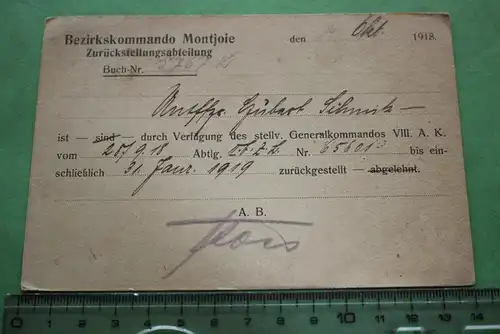 Bezirkskommando Montjoie
Zurückstellungsabteilung
den Okt. 1918.
Buch-Nr.
Hubert Schmitz
ist — sind — durch Verfügung des stellv. Generalkommandos VIII. A. K.
vom 28/9.18 Abtlg. Nr. 65601 bis ein-
schließlich 31. Janr. 1919 zurückgestellt — abgelehnt.
A. B.
0 1 2 3 4 5 6 7 8 9 10 11 12 13 14